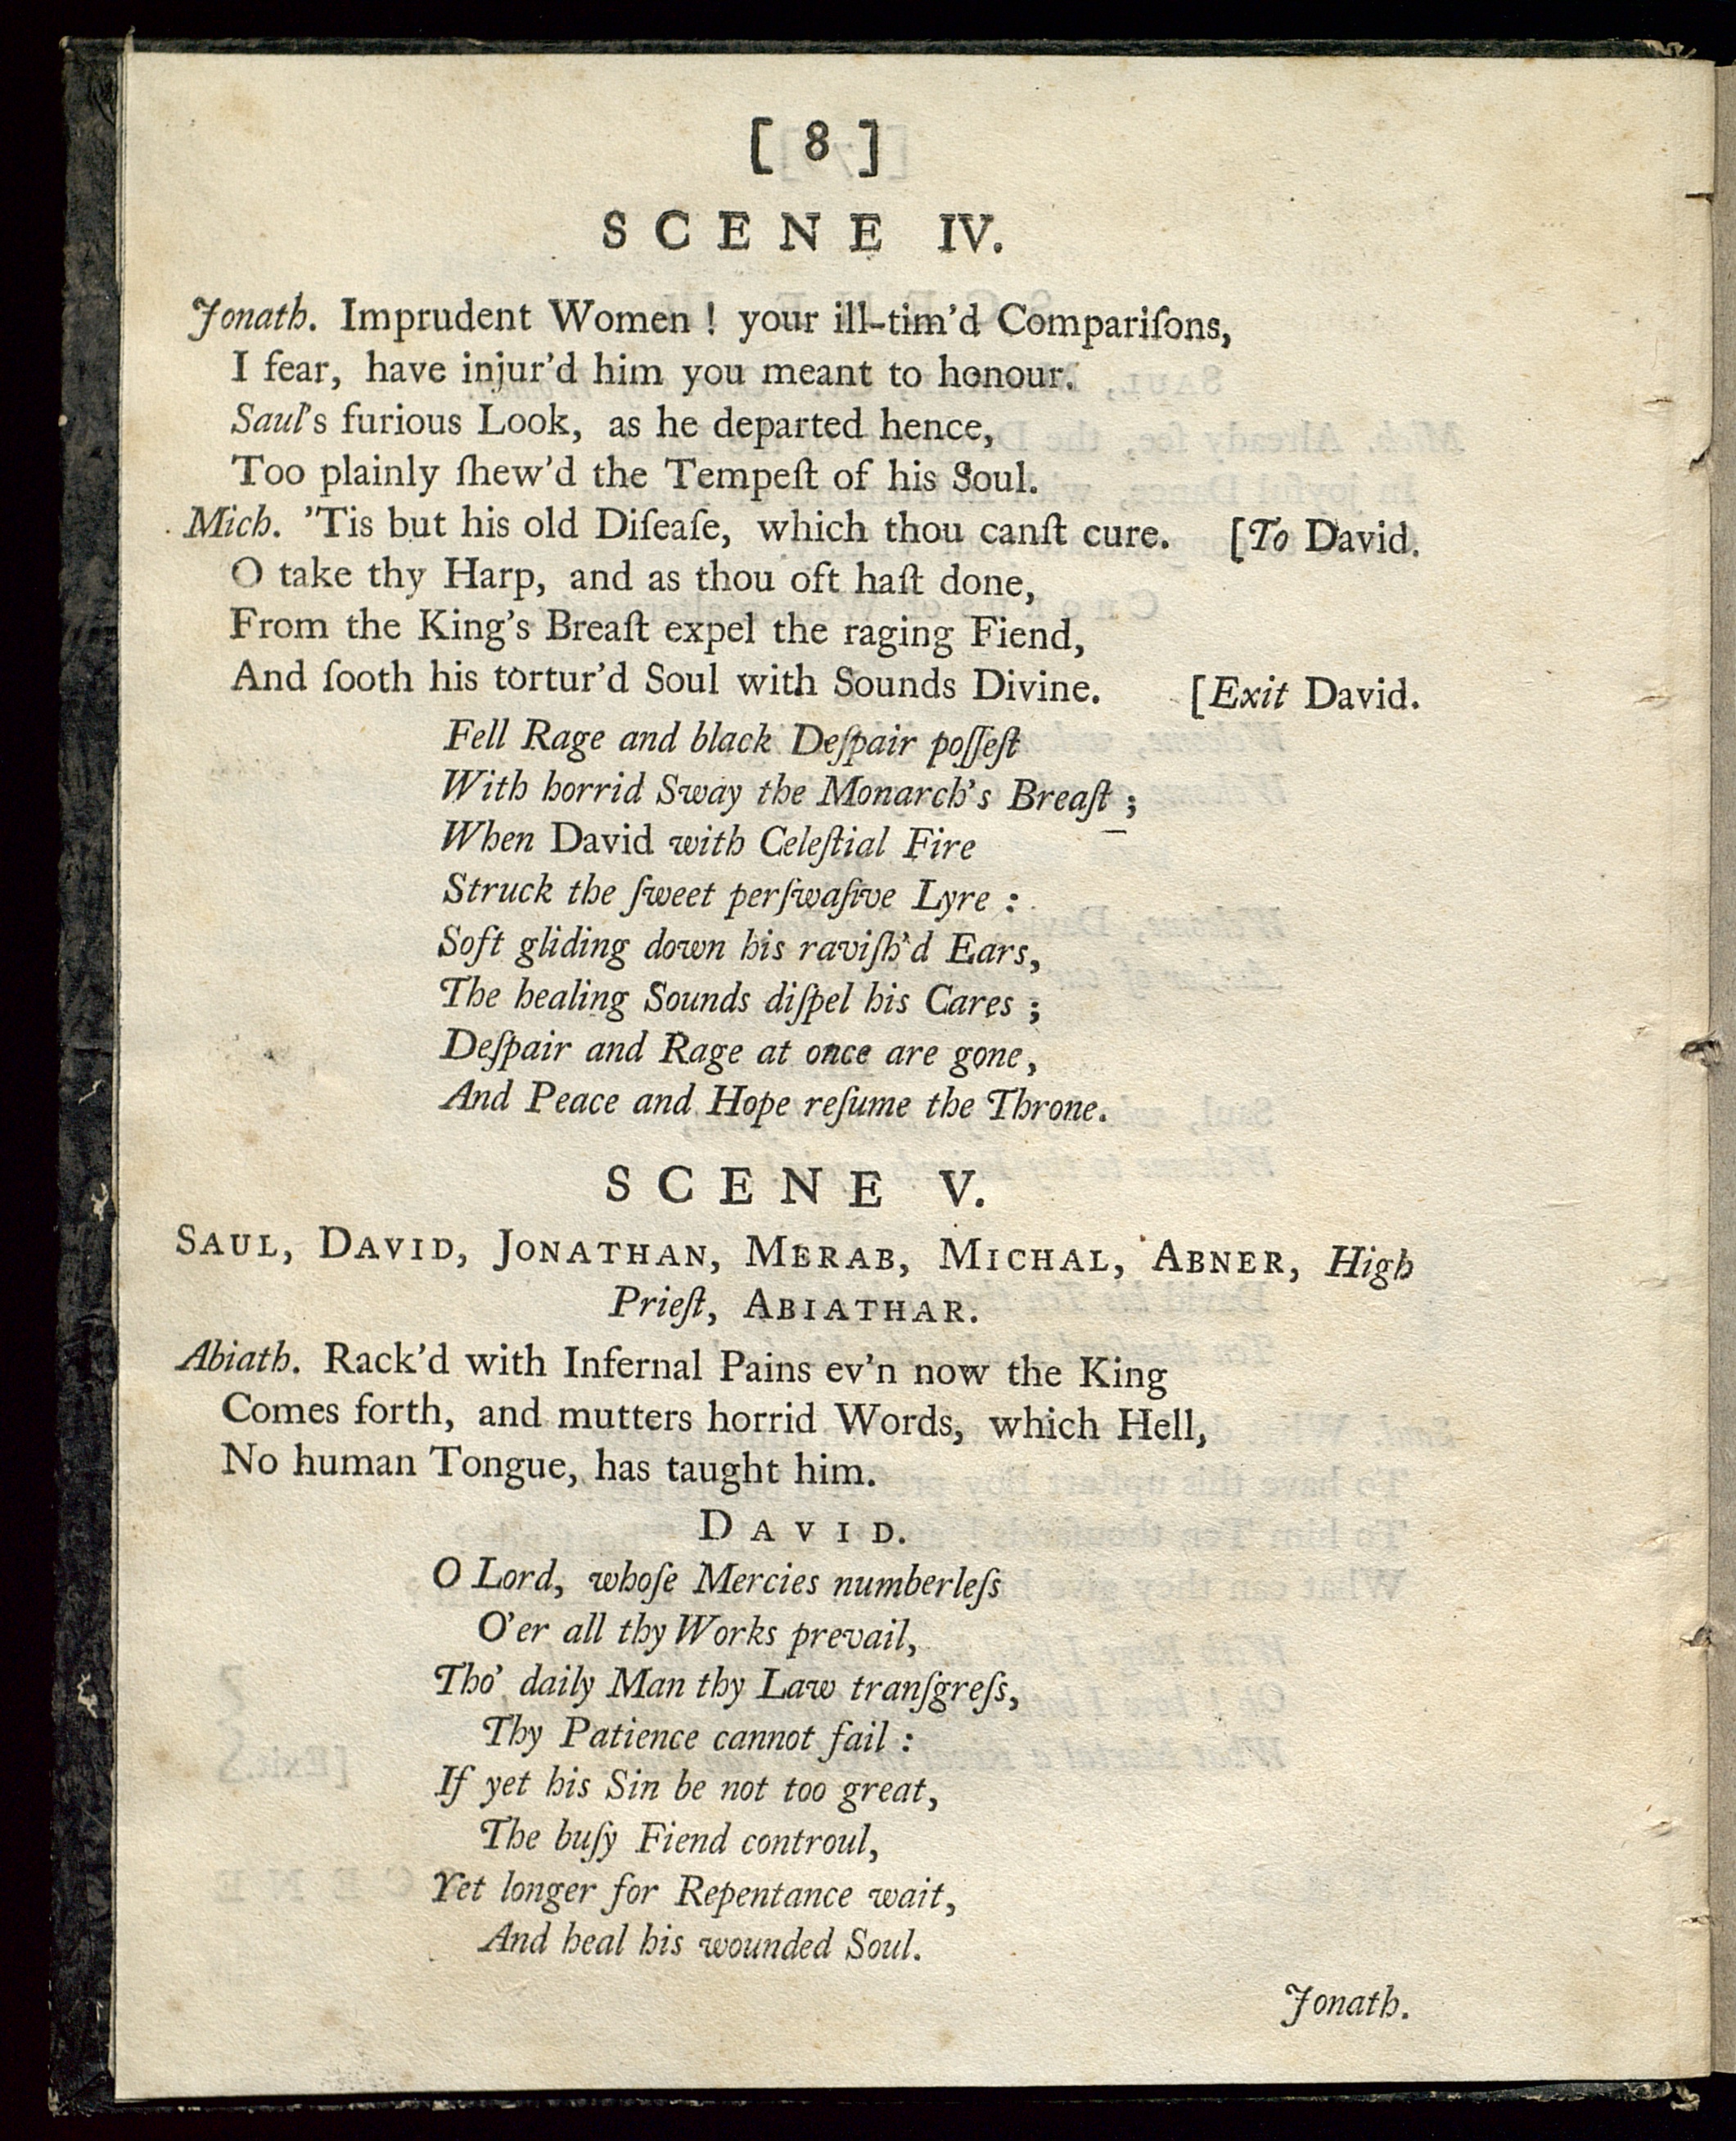 [ 8 ]
SCENE IV.
Jonath. Imprudent Women ! your ill-tim'd Compariſons,
I fear, have injur'd him you meant to honour.
Saul's furious Look, as he departed hence,
Too plainly ſhew'd the Tempeſt of his Soul.
Mich. 'Tis but his old Diſeaſe, which thou canſt cure. [To David.
O take thy Harp, and as thou oft haſt done,
From the King's Breaſt expel the raging Fiend,
And ſooth his tortur'd Soul with Sounds Divine. [Exit David.
Fell Rage and black Deſpair poſſeſt
With horrid Sway the Monarch's Breaſt ;
When David with Celeſtial Fire
Struck the ſweet perſwaſive Lyre :
Soft gliding down his raviſh'd Ears,
The healing Sounds diſpel his Cares ;
Deſpair and Rage at once are gone,
And Peace and Hope reſume the Throne.
SCENE V.
SAUL, DAVID, JONATHAN, MERAB, MICHAL, ABNER, High
Prieſt, ABIATHAR.
Abiath. Rack'd with Infernal Pains ev'n now the King
Comes forth, and mutters horrid Words, which Hell,
No human Tongue, has taught him.
DAVID.
O Lord, whoſe Mercies numberleſs
O'er all thy Works prevail,
Tho' daily Man thy Law tranſgreſs,
Thy Patience cannot fail :
If yet his Sin be not too great,
The buſy Fiend controul,
Yet longer for Repentance wait,
And heal his wounded Soul.
Jonath.